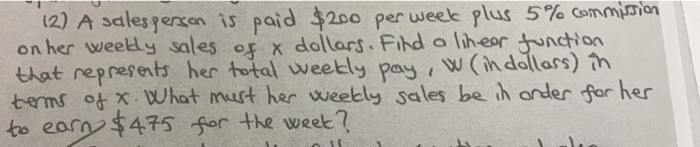 (2) A salesperson is paid $200 per week plus 5% commission
on her weekly sales of x dollars. Find a linear function
that represents her total weekly pay, W (in dollars) in
terms of x. What must her weekly sales be in order for her
to earn $475 for the week?